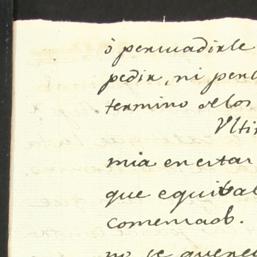 ò persuadirle
pedir, ni per
termino de los
Vlti
mia en estar
que equibal
comensaò.
no se quere